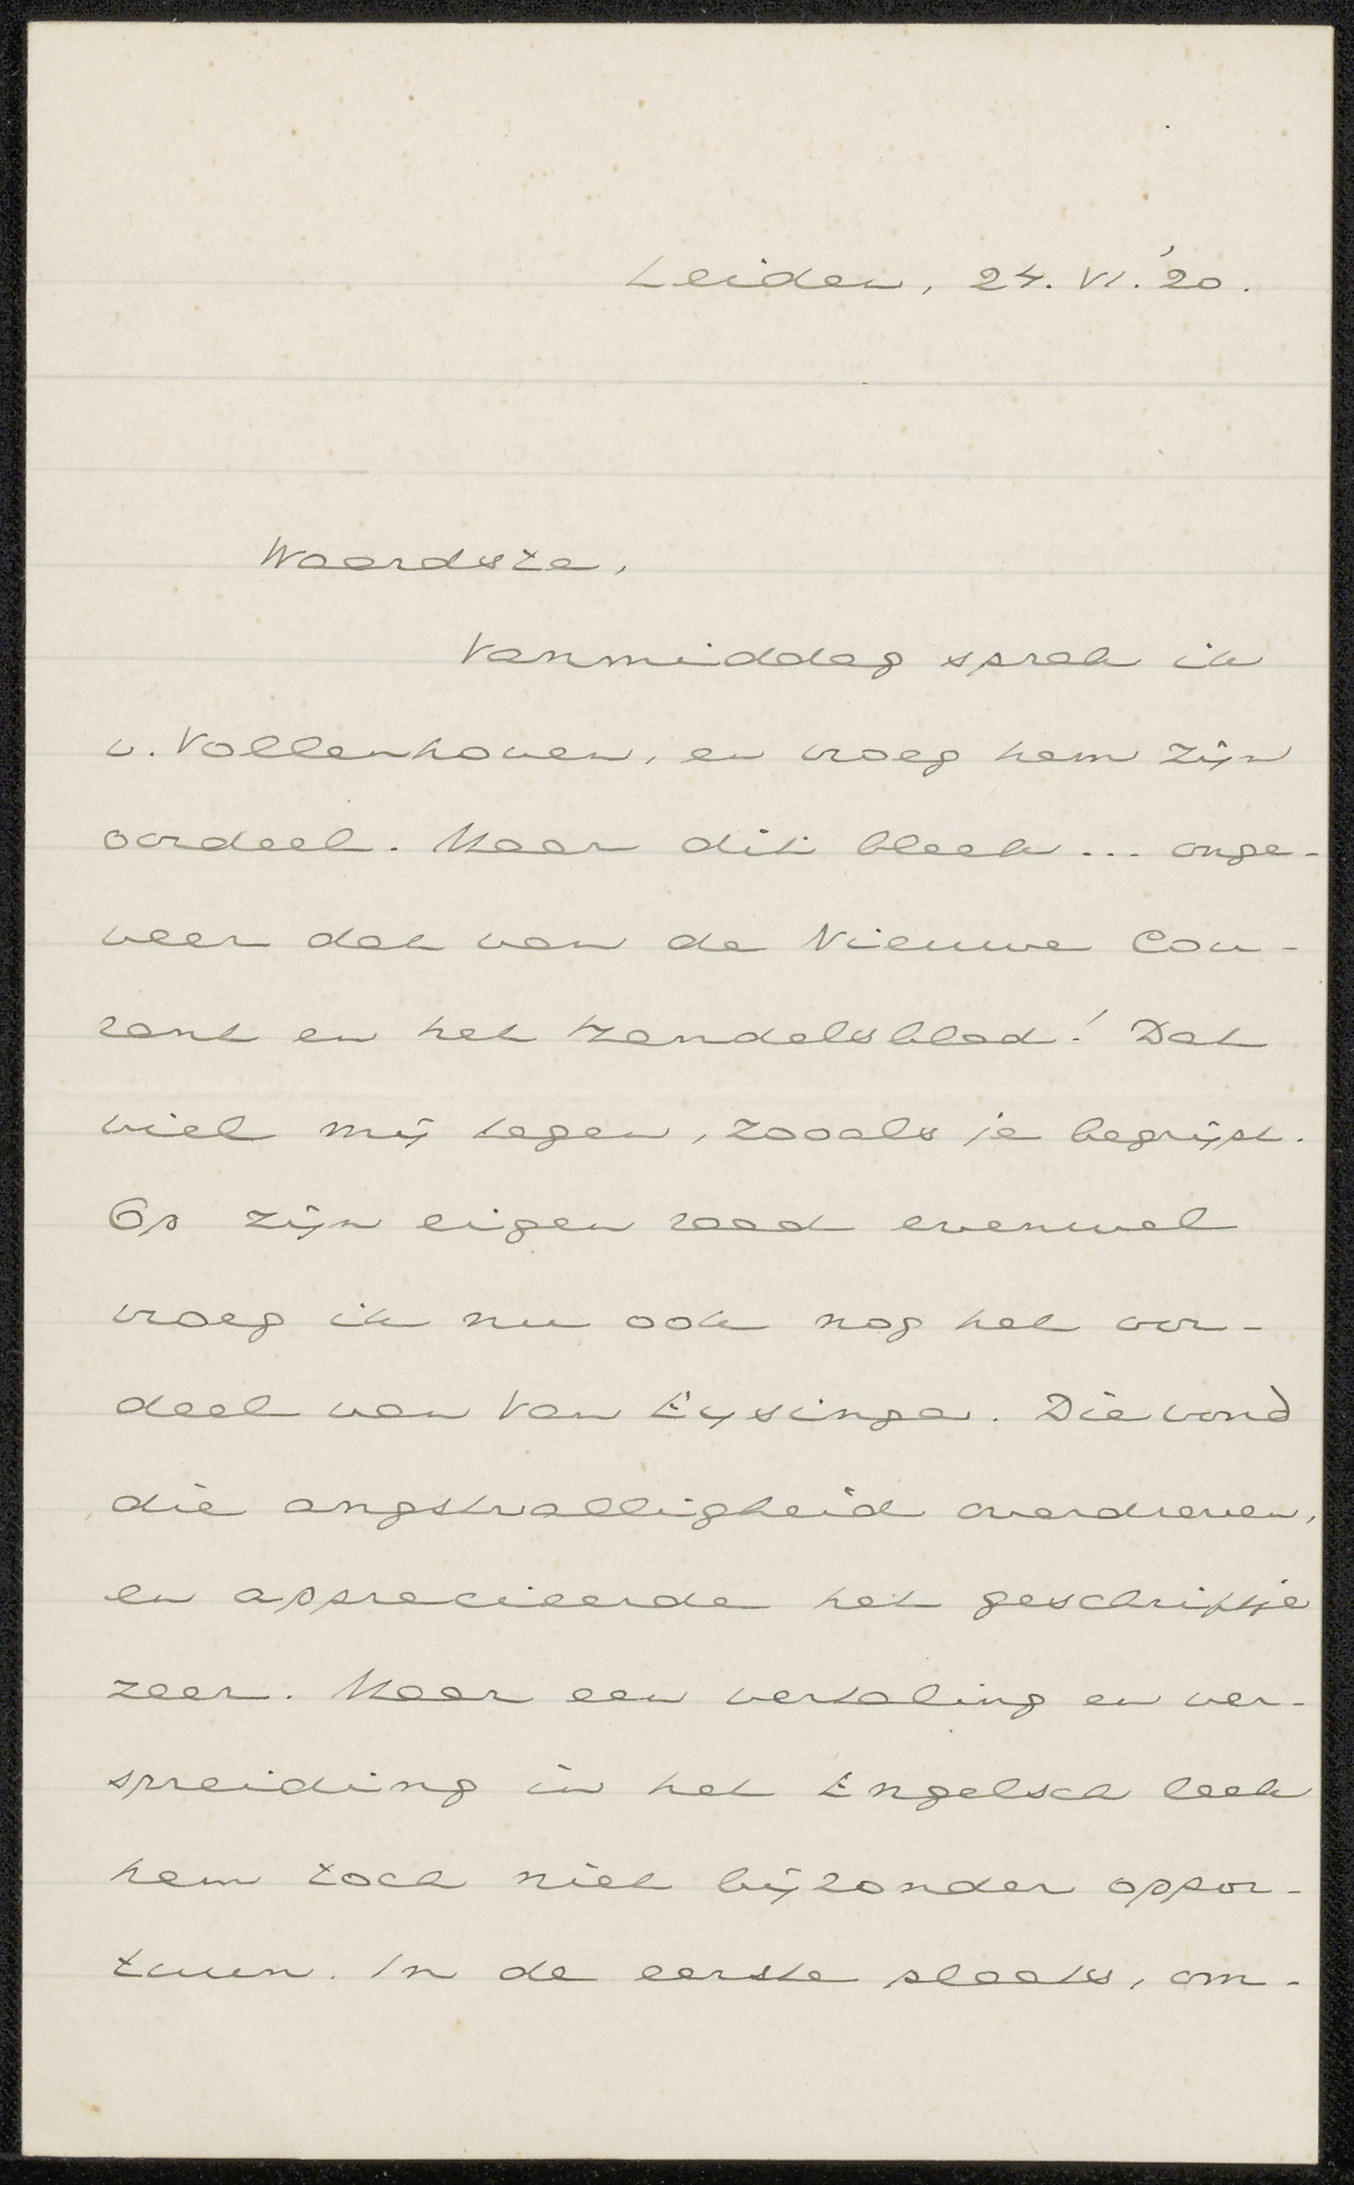 Leiden, 24. VI. '20.
Waardste,
Vanmiddag sprak ik
v. Vollenhoven, en vroeg hem zijn
oordeel. Maar dit bleek ... onge-
veer dat van de Nieuwe Cou-
rant en het Handelsblad! Dat
viel mij tegen, zooals je begrijpt.
Op zijn eigen raad evenwel
vroeg ik nu ook nog het oor-
deel van Van Eysinga. Die vond
die angstvalligheid overdreven,
en apprecieerde het geschriftje
zeer. Maar een vertaling en ver-
spreiding in het Engelsch leek
hem toch niet bijzonder oppor-
tuun. In de eerste plaats, om-